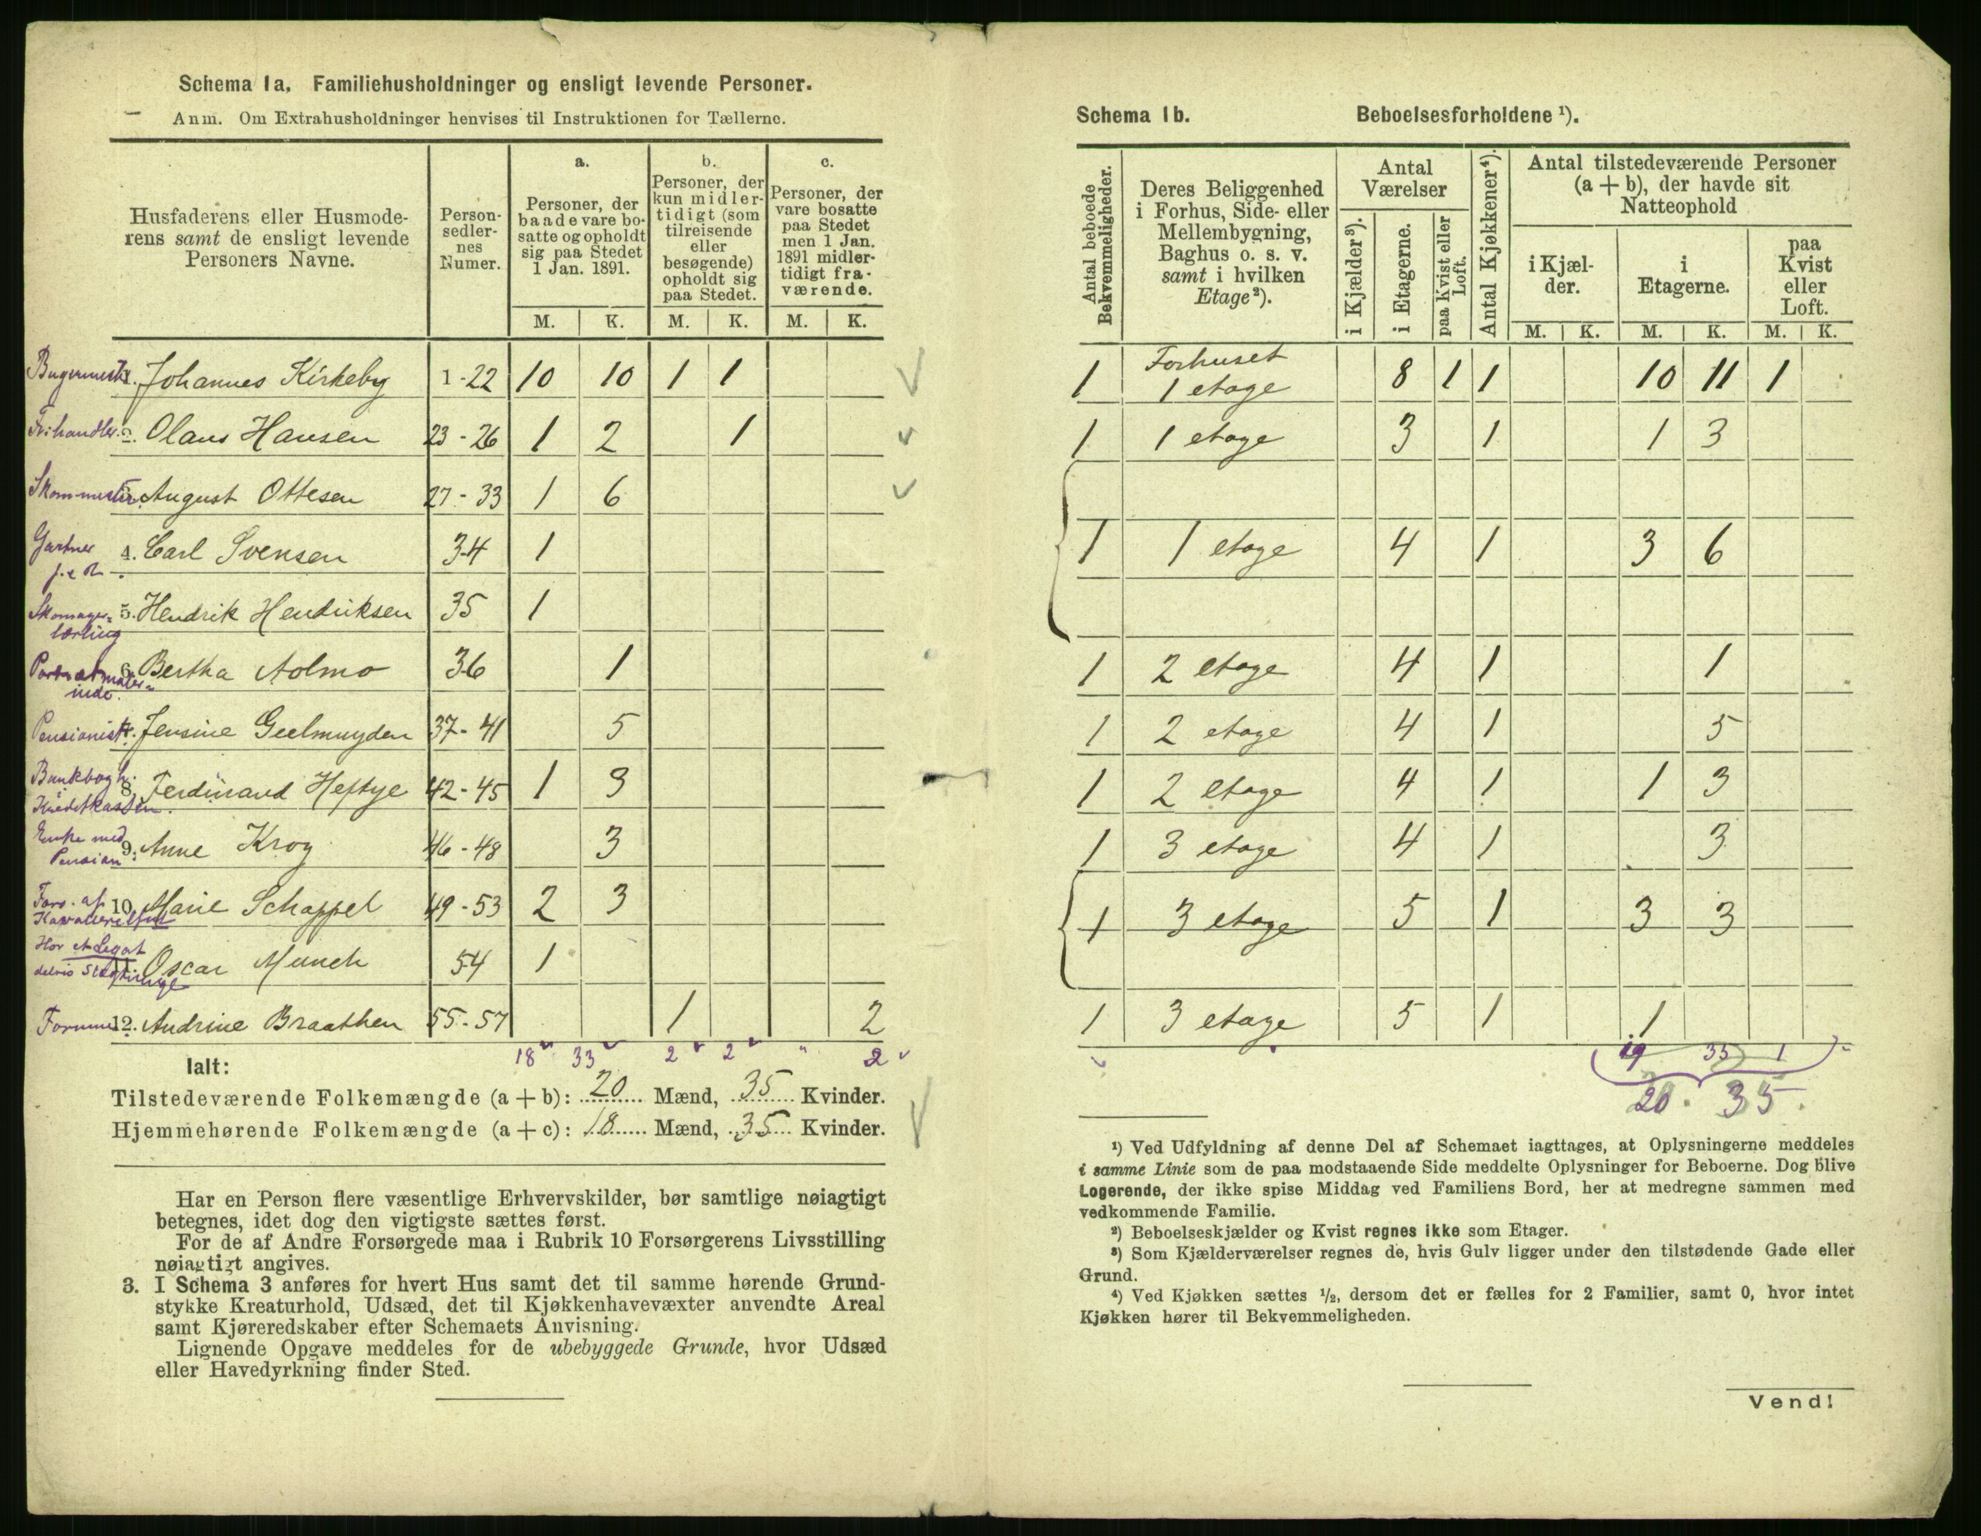 Schema 1a. Familiehusholdninger og ensligt levende Personer.
Anm. Om Extrahusholdninger henvises til Instruktionen for Tællerne.
Husfaderens eller Husmode-
rens samt de ensligt levende
Personers Navne.
Person-
sedler-
nes
Numer.
a.
Personer, der
baade vare bo-
satte og opholdt
sig paa Stedet
1 Jan. 1891.
b.
Personer, der
kun midler-
tidigt (som
tilreisende
eller
besøgende)
opholdt sig
paa Stedet.
c.
Personer, der
vare bosatte
paa Stedet
men 1 Jan.
1891 midler-
tidigt fra-
værende.
M. K. M. K. M. K.
1. Johannes Kirkeby 1-22 10 10 1 1
Frihandler 2. Olaus Hansen 23-26 1 2 1
3. August Ottesen 27-33 1 6
Gartner 4. Carl Svensen 34 1
Skomager-
lærling
5. Hendrik Hendriksen 35 1
6. Bertha Aolmo 36 1
Pensionist 7. Jensine Geelmuyden 37-41 5
Kreditkassen.
8. Ferdinand Heftye 42-45 1 3
Enke med
Pension
9. Anne Krog 46-48 3
Fors. af
10. Marie Schappel 49-53 2 3
11. Oscar Munch 54 1
Formue 12. Andrine Braathen 55-57 1 2
18 33 2 2 " 2
Ialt:
Tilstedeværende Folkemængde (a + b): 20 Mænd, 35 Kvinder.
Hjemmehørende Folkemængde (a + c): 18 Mænd, 35 Kvinder.
Har en Person flere væsentlige Erhvervskilder, bør samtlige nøiagtigt
betegnes, idet dog den vigtigste sættes først.
For de af Andre Forsørgede maa i Rubrik 10 Forsørgerens Livsstilling
nøiagtigt angives.
3. I Schema 3 anføres for hvert Hus samt det til samme hørende Grund-
stykke Kreaturhold, Udsæd, det til Kjøkkenhavevæxter anvendte Areal
samt Kjøreredskaber efter Schemaets Anvisning.
Lignende Opgave meddeles for de ubebyggede Grunde, hvor Udsæd
eller Havedyrkning finder Sted.
Schema 1b. Beboelsesforholdene ¹).
Antal beboede
Bekvemmeligheder.
Deres Beliggenhed
i Forhus, Side- eller
Mellembygning,
Baghus o. s. v.
samt i hvilken
Etage²).
Antal
Værelser
i Kjælder³).
i Etagerne.
paa Kvist eller
Loft.
Antal Kjøkkener⁴).
Antal tilstedeværende Personer
(a + b), der havde sit
Natteophold
i Kjæl-
der.
i
Etagerne.
paa
Kvist
eller
Loft.
M. K. M. K. M. K.
Forhuset
1 1 etage 8 1 1 10 11 1
1 1 etage 3 1 1 3
1 1 etage 4 1 3 6
1 2 etage 4 1 1
1 2 etage 4 1 5
1 2 etage 4 1 1 3
1 3 etage 4 1 3
1 3 etage 5 1 3 3
1 3 etage 5 1 1
19 35 1
20. 35.
¹) Ved Udfyldning af denne Del af Schemaet iagttages, at Oplysningerne meddeles
i samme Linie som de paa modstaaende Side meddelte Oplysninger for Beboerne. Dog blive
Logerende, der ikke spise Middag ved Familiens Bord, her at medregne sammen med
vedkommende Familie.
²) Beboelseskjælder og Kvist regnes ikke som Etager.
³) Som Kjælderværelser regnes de, hvis Gulv ligger under den tilstødende Gade eller
Grund.
⁴) Ved Kjøkken sættes ½, dersom det er fælles for 2 Familier, samt 0, hvor intet
Kjøkken hører til Bekvemmeligheden.
Vend!